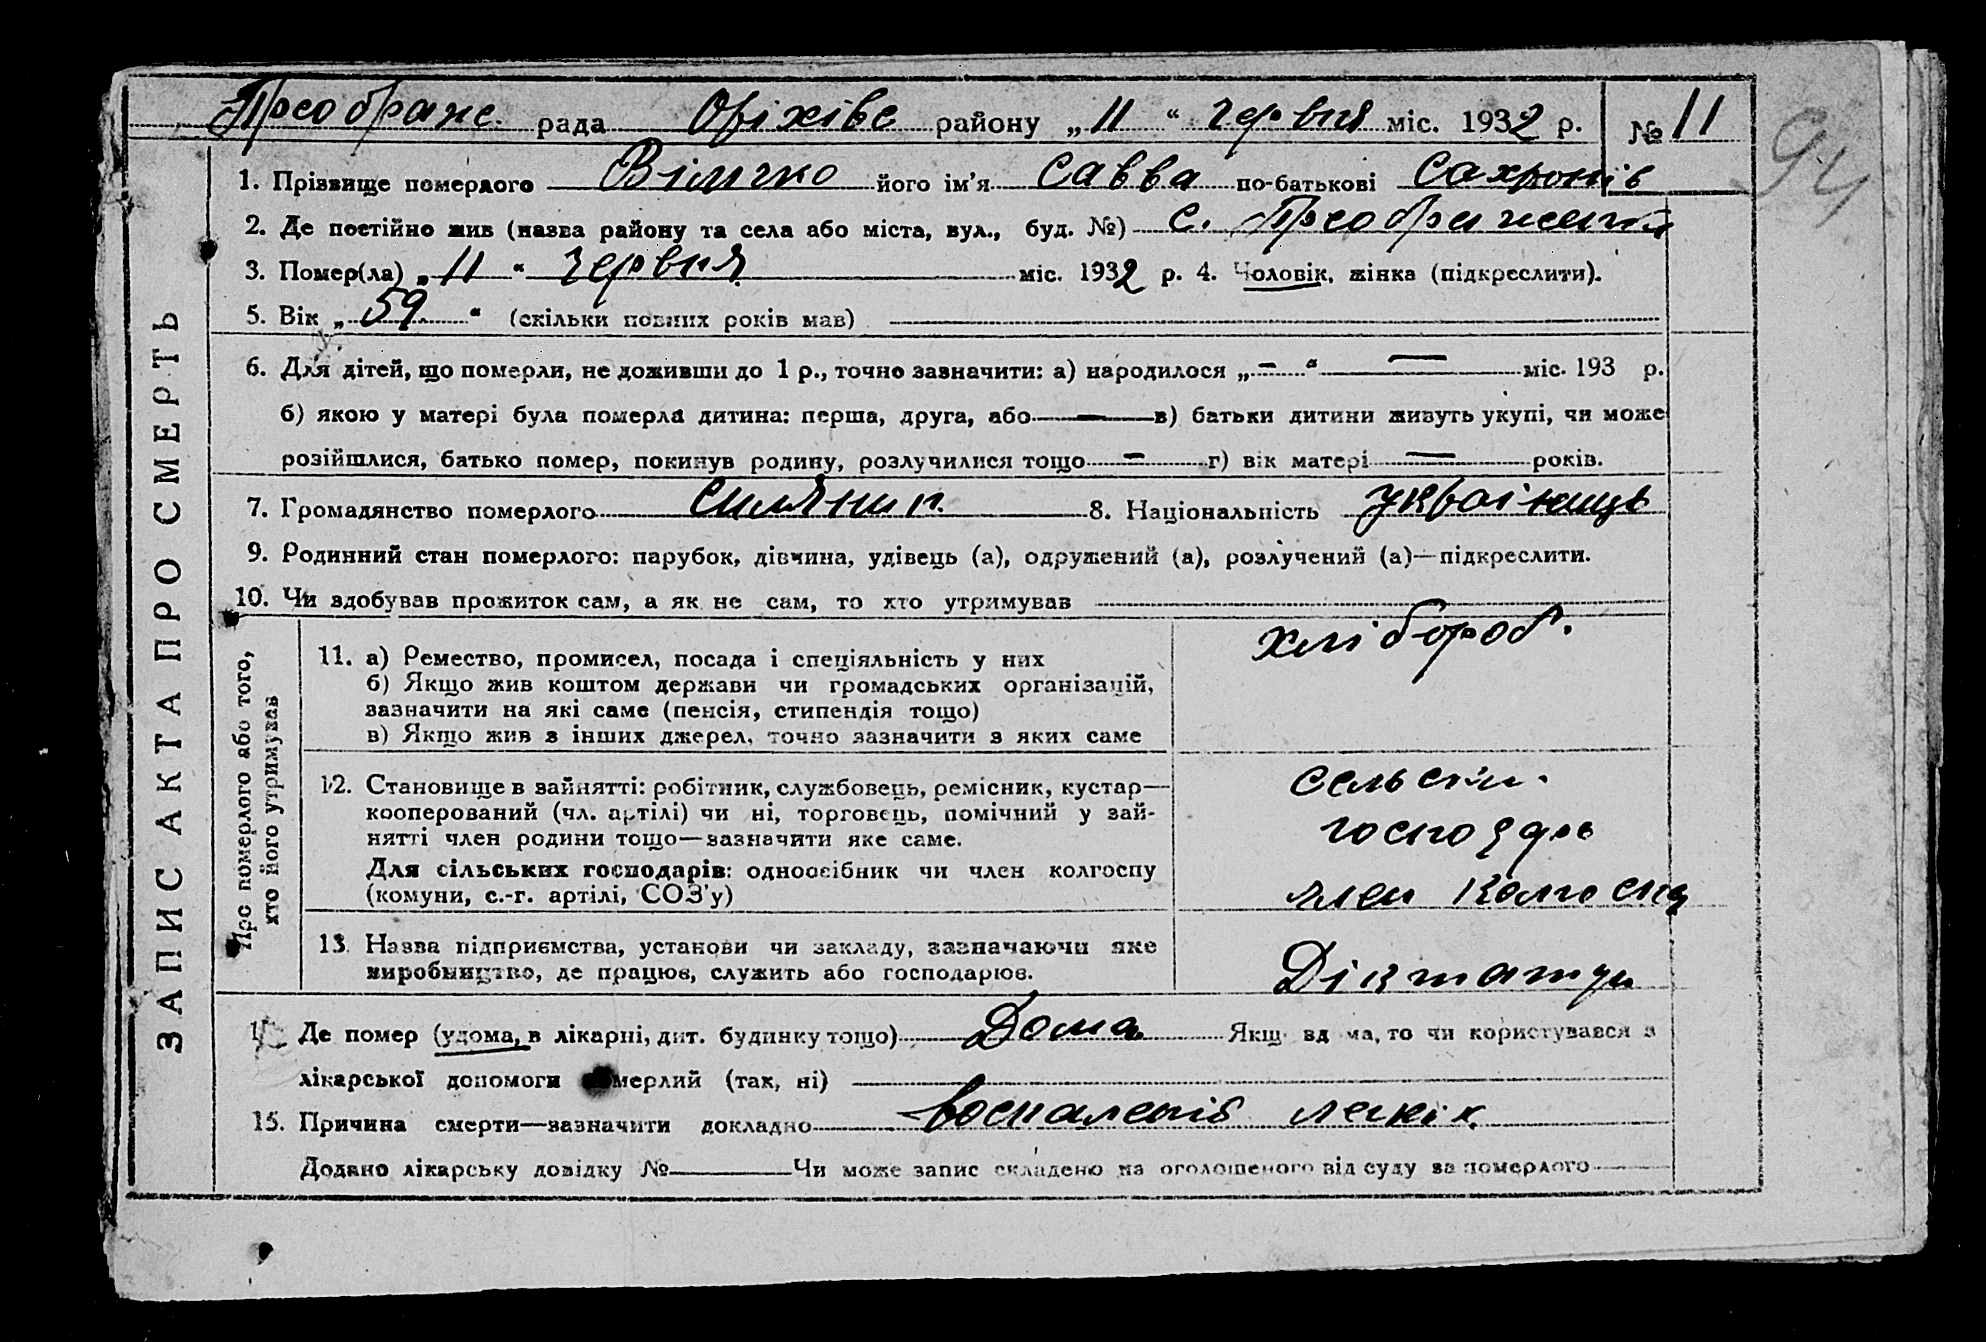 Преображе. рада Оріхівс району „11“ червня міс. 1932 р. № 11
94
1. Прізвище померлого Вілічко його ім’я Савва по-батькові
2. Де постійно жив (назва району та села або міста, вул., буд. №) с. Преображенка
3. Помер(ла) „11“ червня міс. 1932 р. 4. Чоловік, жінка (підкреслити).
5. Вік „59“ (скільки повних років мав)
6. Для дітей, що померли, не доживши до 1 р., точно зазначити: а) народилося „—“ — міс. 193 р.
б) якою у матері була померла дитина: перша, друга, або — в) батьки дитини живуть укупі, чи може
розійшлися, батько помер, покинув родину, розлучилися тощо — г) вік матері — років.
7. Громадянство померлого 8. Національність українець
9. Родинний стан померлого: парубок, дівчина, удівець (а), одружений (а), розлучений (а)—підкреслити.
10. Чи здобував прожиток сам, а як не сам, то хто утримував
ЗАПИС АКТА ПРО СМЕРТЬ
Про померлого або того,
хто його утримував
11. а) Ремество, промисел, посада і спеціяльність у них
б) Якщо жив коштом держави чи громадських організацій,
зазначити на які саме (пенсія, стипендія тощо)
в) Якщо жив з інших джерел, точно зазначити з яких саме
хлібороб.
12. Становище в зайнятті: робітник, службовець, ремісник, кустар—
кооперований (чл. артілі) чи ні, торговець, помічний у зай-
нятті член родини тощо—зазначити яке саме.
Для сільських господарів: одноосібник чи член колгоспу
(комуни, с.-г. артілі, СОЗ’у)
сельськи.
господарь
член колгоспу
13. Назва підприємства, установи чи закладу, зазначаючи яке
виробництво, де працює, служить або господарює.
Діктатури
Де помер (удома, в лікарні, дит. будинку тощо) Дома Якщо вдома, то чи користувався з
лікарської допомоги померлий (так, ні)
15. Причина смерти—зазначити докладно воспаленія легкіх
Додано лікарську довідку № Чи може запис складено на оголошеного від суду за померлого